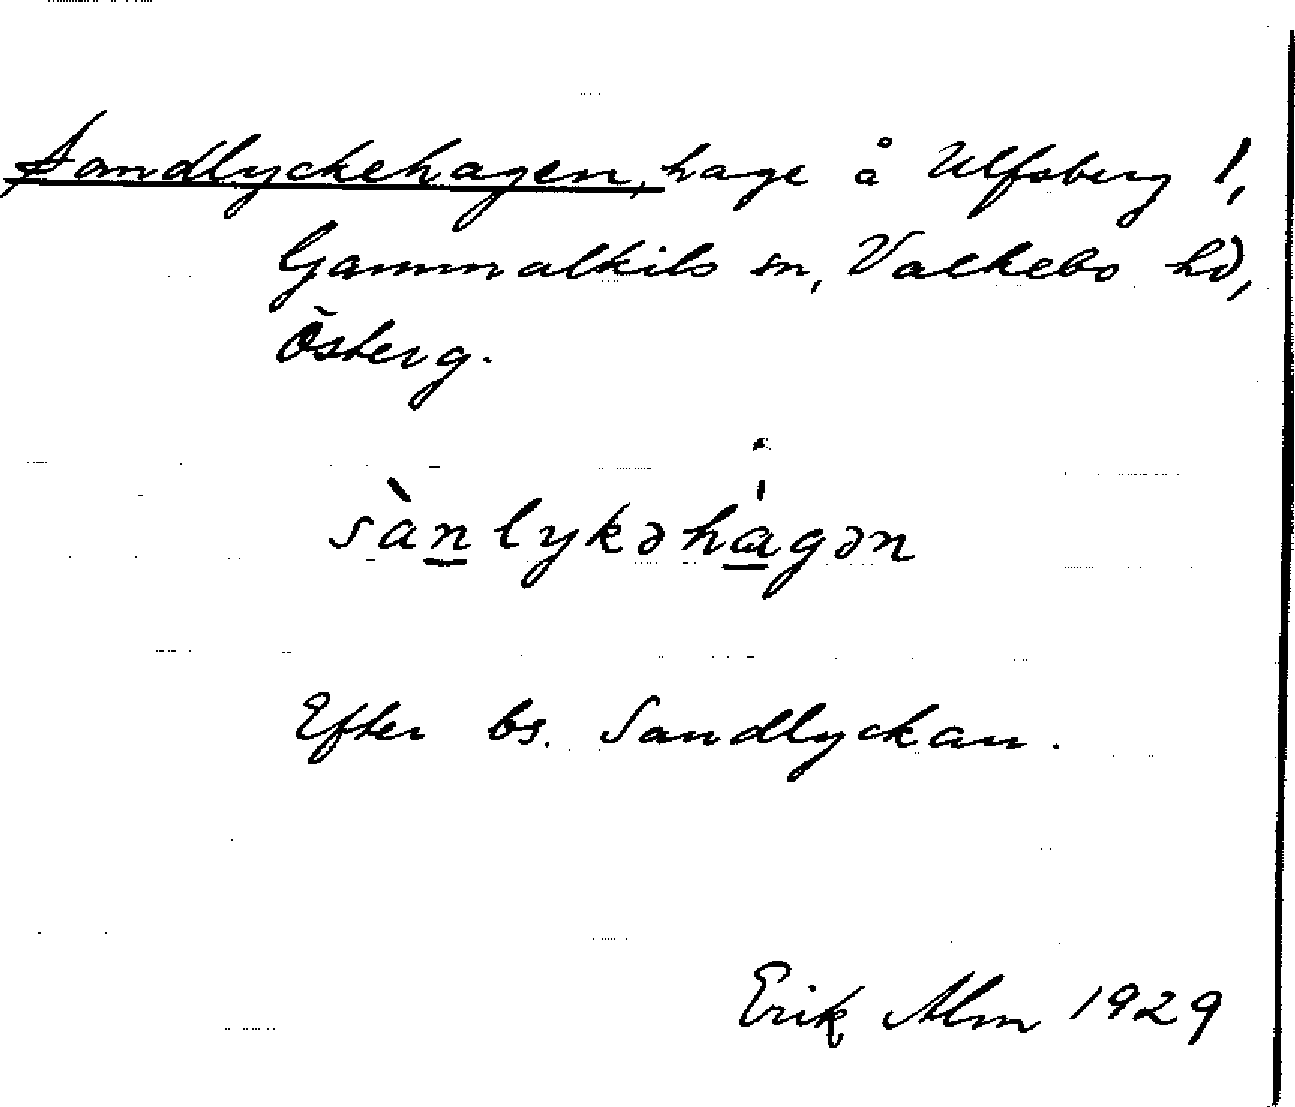 Sandlyckehagen, hage å Ulfsberg 1,
Gammalkils sn, Valkebo hd,
Österg.
sànlykəhágən
Efter bs. Sandlyckan.
Erik Alm 1929